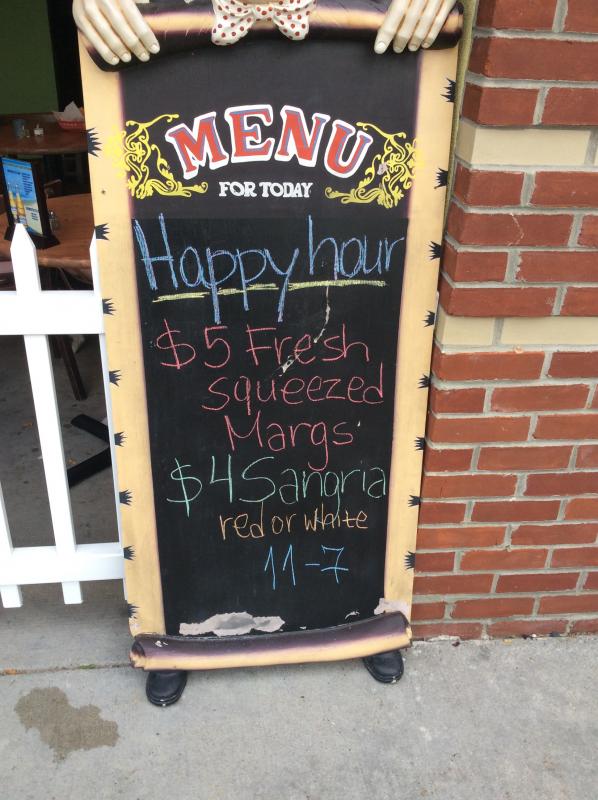 MENU
FOR TODAY
Happy hour
$5 Fresh
squeezed
Margs
$4 Sangria
red or white
11-7